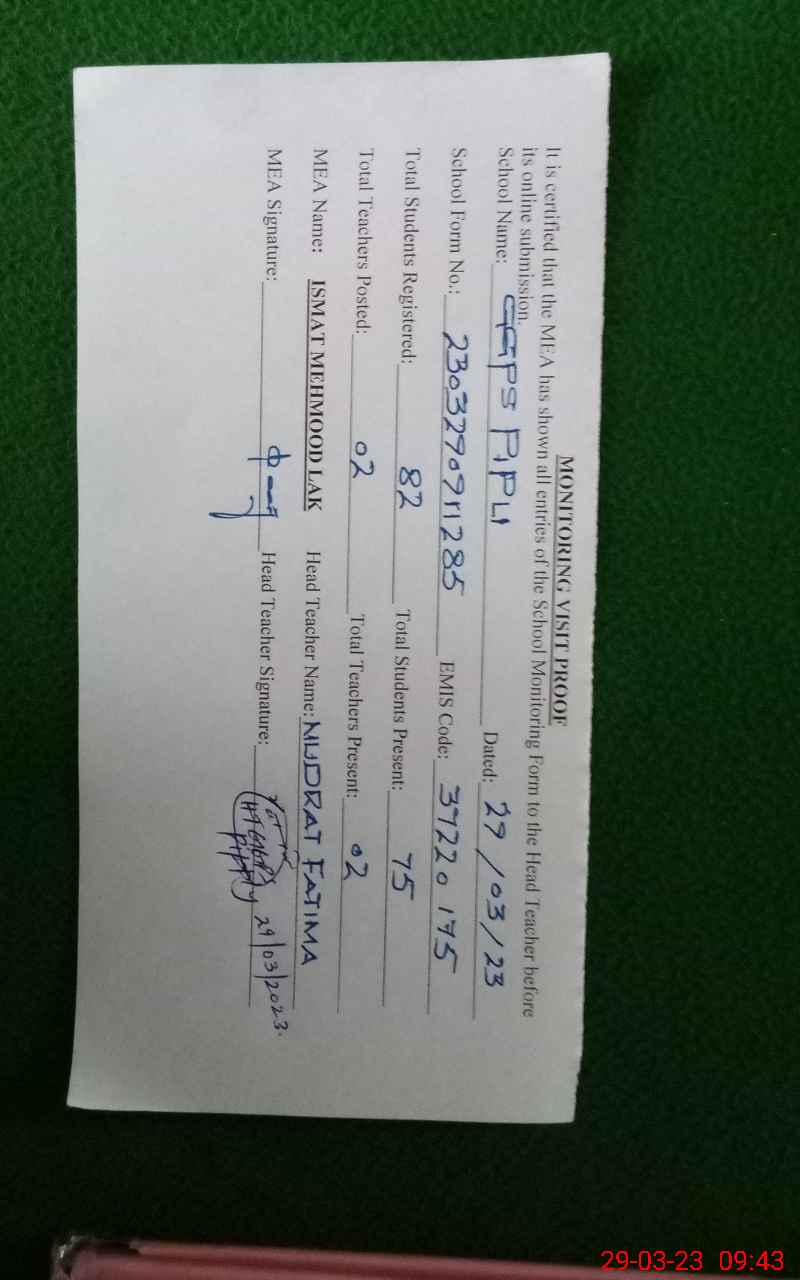 MONITORING VISIT PROOF
It is certified that the MEA has shown all entries of the School Monitoring Form to the Head Teacher before
its online submission.
School Name: GGPS PIPLI Dated: 29/03/23
School Form No.: 230329091285 EMIS Code: 37220175
Total Students Registered: 82 Total Students Present: 75
Total Teachers Posted: 02 Total Teachers Present: 02
MEA Name: ISMAT MEHMOOD LAK Head Teacher Name: NUDRAT FATIMA
MEA Signature: Head Teacher Signature: 29/03/2023.
29-03-23 09:43